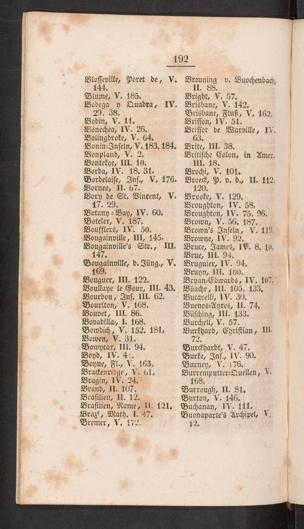 192
Blosseville, Poret de, V.
144.
Blume, V. 185.
Bodega y Quadra, IV.
29. 38.
Bodin, V. 11.
Bonechea, IV. 26.
Bolingbroke, V. 64.
Bonin-Inseln, V. 183, 184.
Bonpland, V. 2.
Bontekoe, III. 10.
Borda, IV. 18. 31.
Bordelaise, Ins., V. 176.
Borneo, II. 67.
Bory de St. Vincent, V.
17. 29.
Botany-Bay, IV. 60.
Boteler, V. 187.
Boufflers, IV. 50.
Bougainville, III, 145.
Bougainville's Str., III.
147.
Bougainville, d. Jüng., V.
169.
Bouguer, III. 122.
Boullaye le Gouz, III. 43.
Bourbon, Ins. III. 62.
Bourlton, V. 168.
Bouvet, III. 86.
Bovadilla, I. 168.
Bowdich, V. 152. 181.
Bowen, V. 31.
Bowyear, III. 94.
Boyd, IV.
Boyne, Fl., V. 163.
Brackenridge, V. 61.
Bragin, IV. 24.
Brand, II. 107.
Brasilien, II. 12.
Brasilien, Name, II. 121.
Braz, Math. I. 47.
Bremer, V. 172.
Breuning v. Buochenbach,
II. 88.
Bright, V. 57.
Brisbane, V. 142.
Brisbane, Fluß, V. 162.
Brisson, IV. 51.
Brissot de Warville, IV.
63.
Brite, III. 38.
Brittische Colon. in Amer.
III. 18.
Brochi, V. 101.
Broeck, P. v. d., II. 112.
120.
Brooke, V. 129.
Broughton, IV. 58.
Broughton, IV. 75. 96.
Brown, V. 56. 187.
Brown's Inseln, V. 119.
Browne, IV. 92.
Bruce, James, IV. 8. 10.
Brue, III. 94.
Brugnier, IV. 94.
Bruyn, III. 100.
Bryan-Edwards, IV. 107.
Buache, III. 105. 133.
Bucarelli, IV. 30.
Buenos-Ayres, II. 74.
Büsching, III. 133.
Burchell, V. 57.
Burkhard, Christian, III.
72.
Burckhardt, V. 47.
Burke, Ins., IV. 90.
Burney, V. 176.
Burremputter-Quellen, V.
168.
Burrough, II. 81.
Burton, V. 146.
Buchanan, IV. 111.
Buonaparte's Archipel, V.
12.